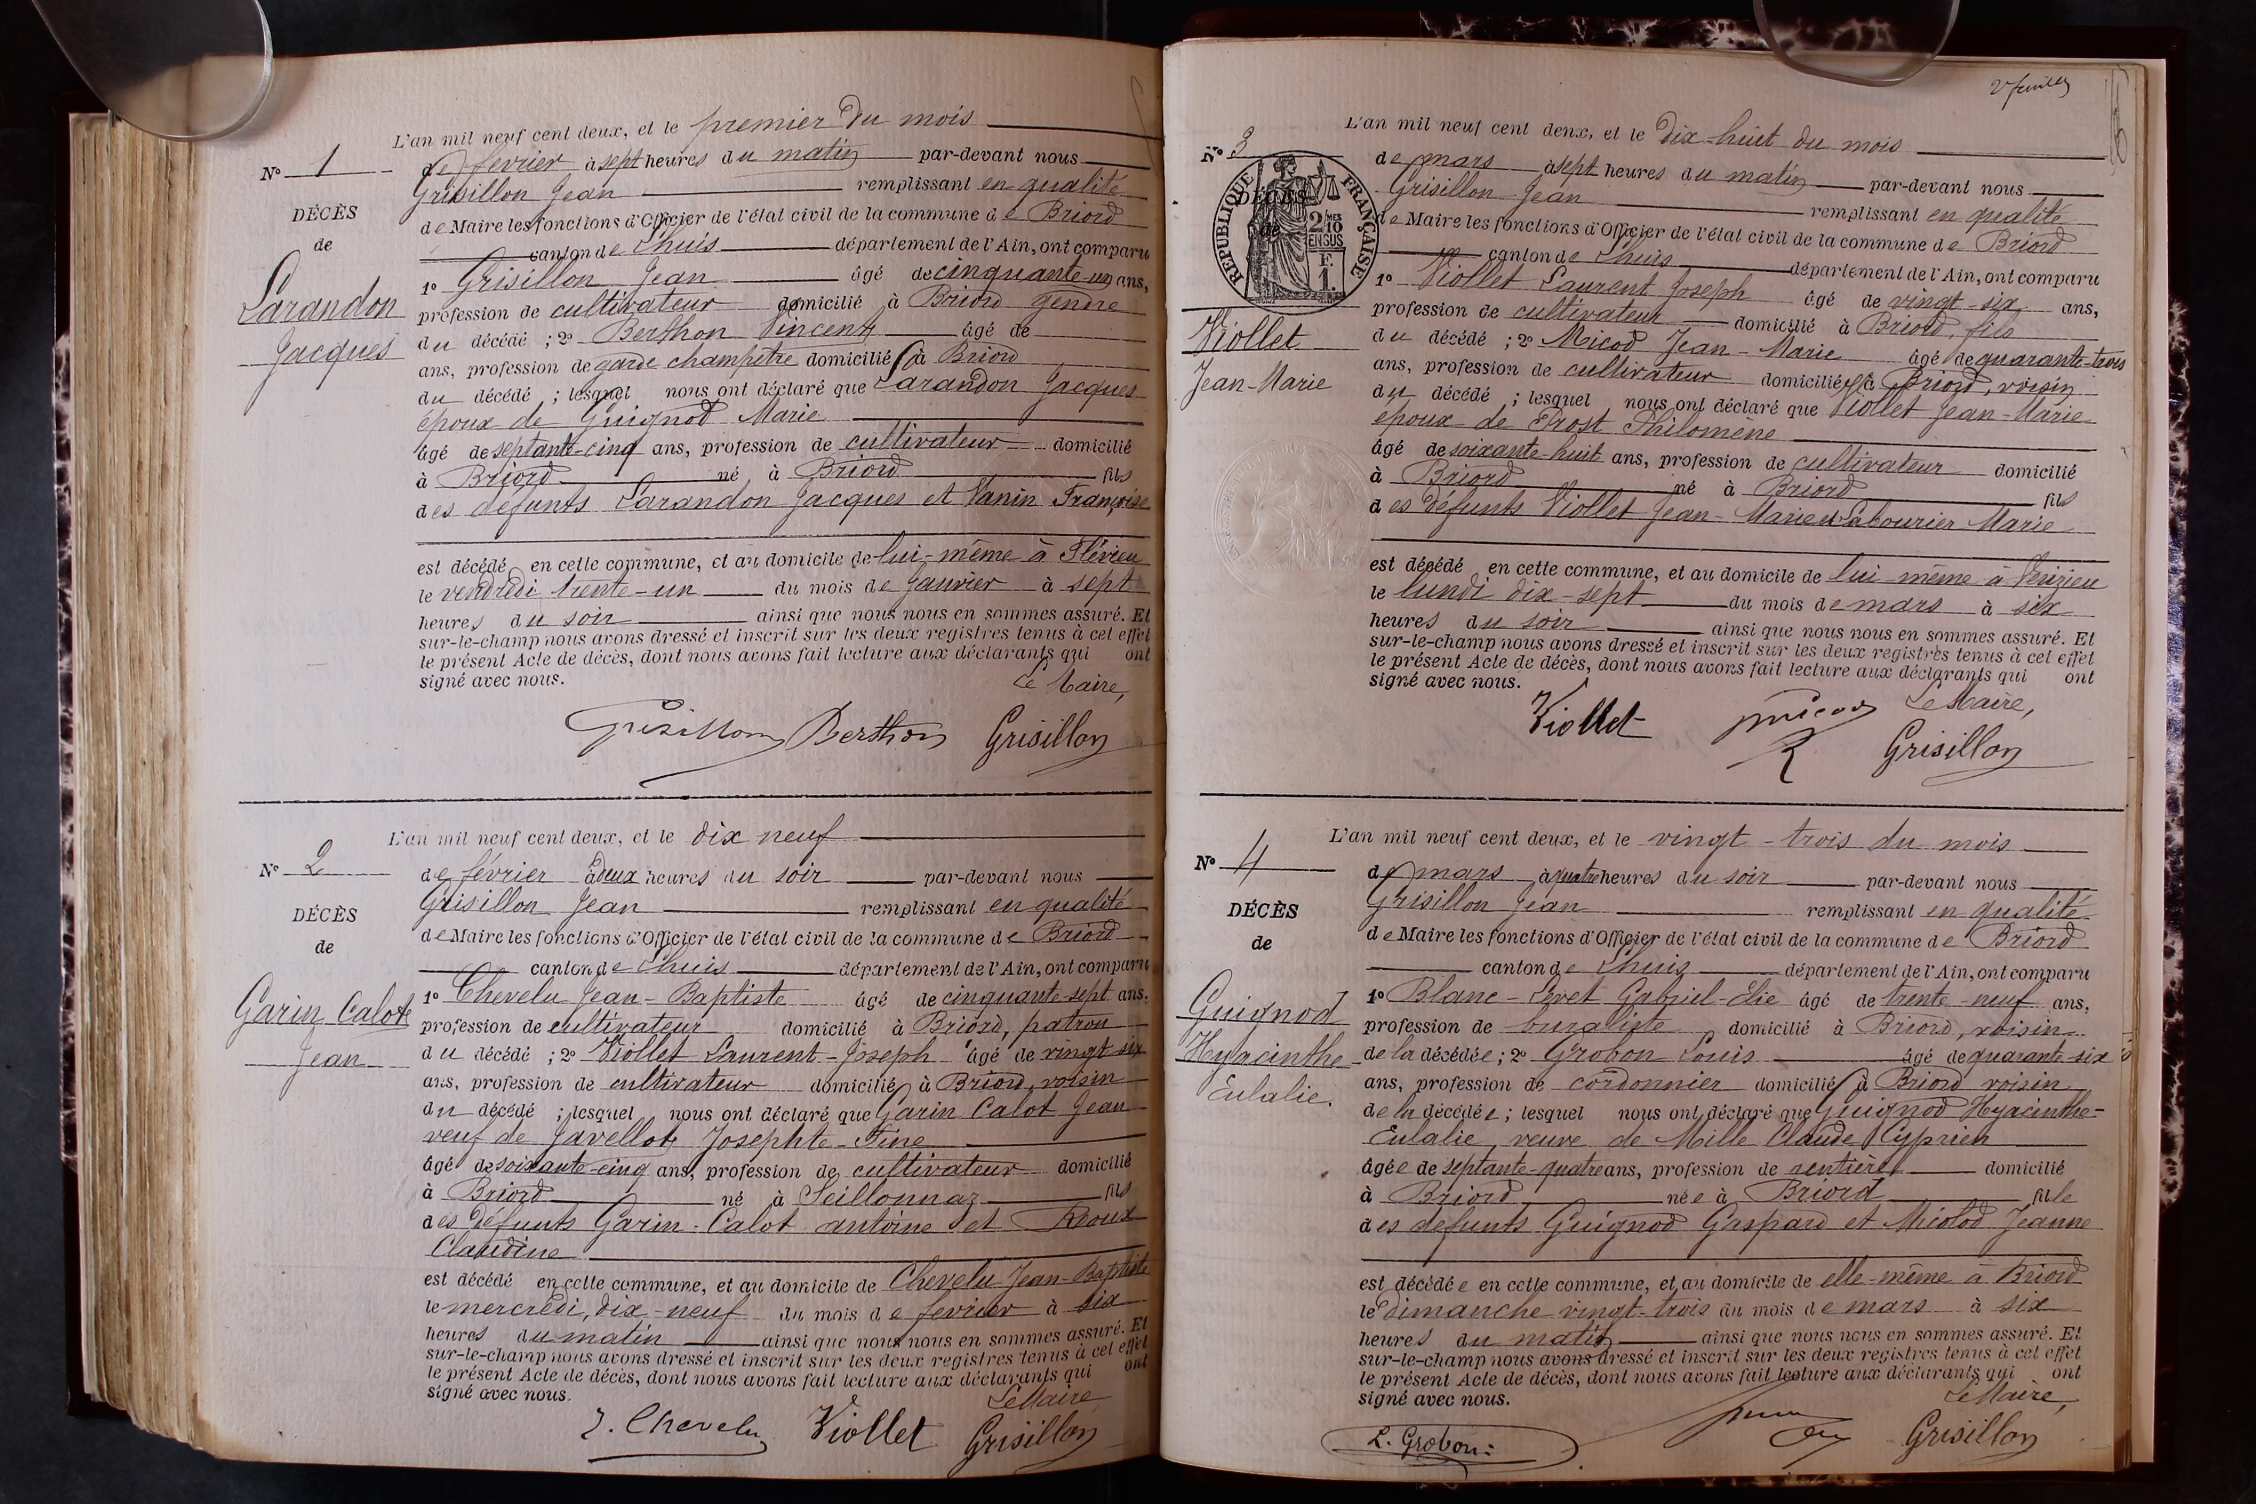 L'an mil neuf cent deux, et le premier du mois
N° 1
de février à sept heures du matin par-devant nous
Grisillon Jean remplissant en qualité
DÉCÈS
de Maire les fonctions d'Officier de l'état civil de la commune de Briord
de
canton de Lhuis département de l'Ain, ont comparu
1° Grisillon Jean âgé de cinquante-un ans,
Larandon
profession de cultivateur domicilié à Briord gendre
du décédé ; 2° Berthon Vincent âgé de
Jacques
ans, profession de garde champêtre domicilié à Briord
du décédé ; lesquel nous ont déclaré que Larandon Jacques
époux de Guignod Marie
âgé de septante-cinq ans, profession de cultivateur domicilié
à Briord né à Briord fils
des défunts Larandon Jacques et Vanin Françoise
est décédé en cette commune, et au domicile de lui-même à Flévieu
le vendredi trente-un du mois de Janvier à sept
heures du soir ainsi que nous nous en sommes assuré. Et
sur-le-champ nous avons dressé et inscrit sur les deux registres tenus à cet effet
le présent Acte de décès, dont nous avons fait lecture aux déclarants qui ont
signé avec nous.
Le Maire,
Grisillon Berthon Grisillon
L'an mil neuf cent deux, et le dix neuf
N° 2
de février à deux heures du soir par-devant nous
Grisillon Jean remplissant en qualité
DÉCÈS
de Maire les fonctions d'Officier de l'état civil de la commune de Briord
de
canton de Lhuis département de l'Ain, ont comparu
1° Chevelu Jean-Baptiste âgé de cinquante-sept ans.
Garin Calot
profession de cultivateur domicilié à Briord, patron
Jean
du décédé ; 2° Viollet Laurent-Joseph âgé de vingt-six
ans, profession de cultivateur domicilié à Briord, voisin
du décédé ; lesquel nous ont déclaré que Garin Calot Jean
veuf de Javellot Josephte-Fine
âgé de soixante-cinq ans, profession de cultivateur domicilié
à Briord né à Seillonnaz fils
des défunts Garin-Calot antoine et Rioux
Claudine
est décédé en cette commune, et au domicile de Chevelu Jean-Baptiste
le mercredi, dix-neuf du mois de fevrier à six
heures du matin ainsi que nous nous en sommes assuré. Et
sur-le-champ nous avons dressé et inscrit sur les deux registres tenus à cet effet
le présent Acte de décès, dont nous avons fait lecture aux déclarants qui ont
signé avec nous.
Le Maire,
J. Chevelu Viollet Grisillon
L'an mil neuf cent deux, et le Dix-huit du mois
N° 3
de mars à sept heures du matin par-devant nous
Grisillon Jean remplissant en qualité
DÉCÈS
de
RÉPUBLIQUE FRANÇAISE
2/10 MES
EN SUS
F.
1.
de Maire les fonctions d'Officier de l'état civil de la commune de Briord
canton de Lhuis département de l'Ain, ont comparu
1° Viollet Laurent Joseph âgé de vingt-six ans,
profession de cultivateur domicilié à Briord, fils
Viollet
Jean-Marie
du décédé ; 2° Micod Jean-Marie âgé de quarante-trois
ans, profession de cultivateur domicilié à Briord, voisin
du décédé ; lesquel nous ont déclaré que Viollet Jean-Marie
époux de Prost Philomène
âgé de soixante-huit ans, profession de cultivateur domicilié
à Briord né à Briord fils
des Défunts Viollet Jean-Marie et Labourier Marie
est décédé en cette commune, et au domicile de lui-même à Vérizieu
le lundi dix-sept du mois de mars à six
heures du soir ainsi que nous nous en sommes assuré. Et
sur-le-champ nous avons dressé et inscrit sur les deux registres tenus à cet effet
le présent Acte de décès, dont nous avons fait lecture aux déclarants qui ont
signé avec nous.
Le Maire,
Viollet Micod Grisillon
L'an mil neuf cent deux, et le vingt-trois du mois
N° 4
de mars à quatre heures du soir par-devant nous
Grisillon Jean remplissant en qualité
DÉCÈS
de Maire les fonctions d'Officier de l'état civil de la commune de Briord
de
canton de Lhuis département de l'Ain, ont comparu
1° Blanc- Gabriel-Elie âgé de trente-neuf ans,
Guignod
profession de buraliste domicilié à Briord, voisin
Hyacinthe
de la décédée ; 2° Grobon Louis âgé de quarante-six
Eulalie.
ans, profession de cordonnier domicilié à Briord voisin
de la décédée ; lesquel nous ont déclaré que Guignod Hyacinthe-
Eulalie, veuve de Mille Claude Cyprien
âgée de septante-quatre ans, profession de rentière domicilié
à Briord née à Briord fille
des défunts Guignod Gaspard et Micolod Jeanne
est décédée en cette commune, et au domicile de elle-même à Briord
le dimanche vingt-trois du mois de mars à six
heures du matin ainsi que nous nous en sommes assuré. Et
sur-le-champ nous avons dressé et inscrit sur les deux registres tenus à cet effet
le présent Acte de décès, dont nous avons fait lecture aux déclarants qui ont
signé avec nous.
Le Maire,
L. Grobon Grisillon